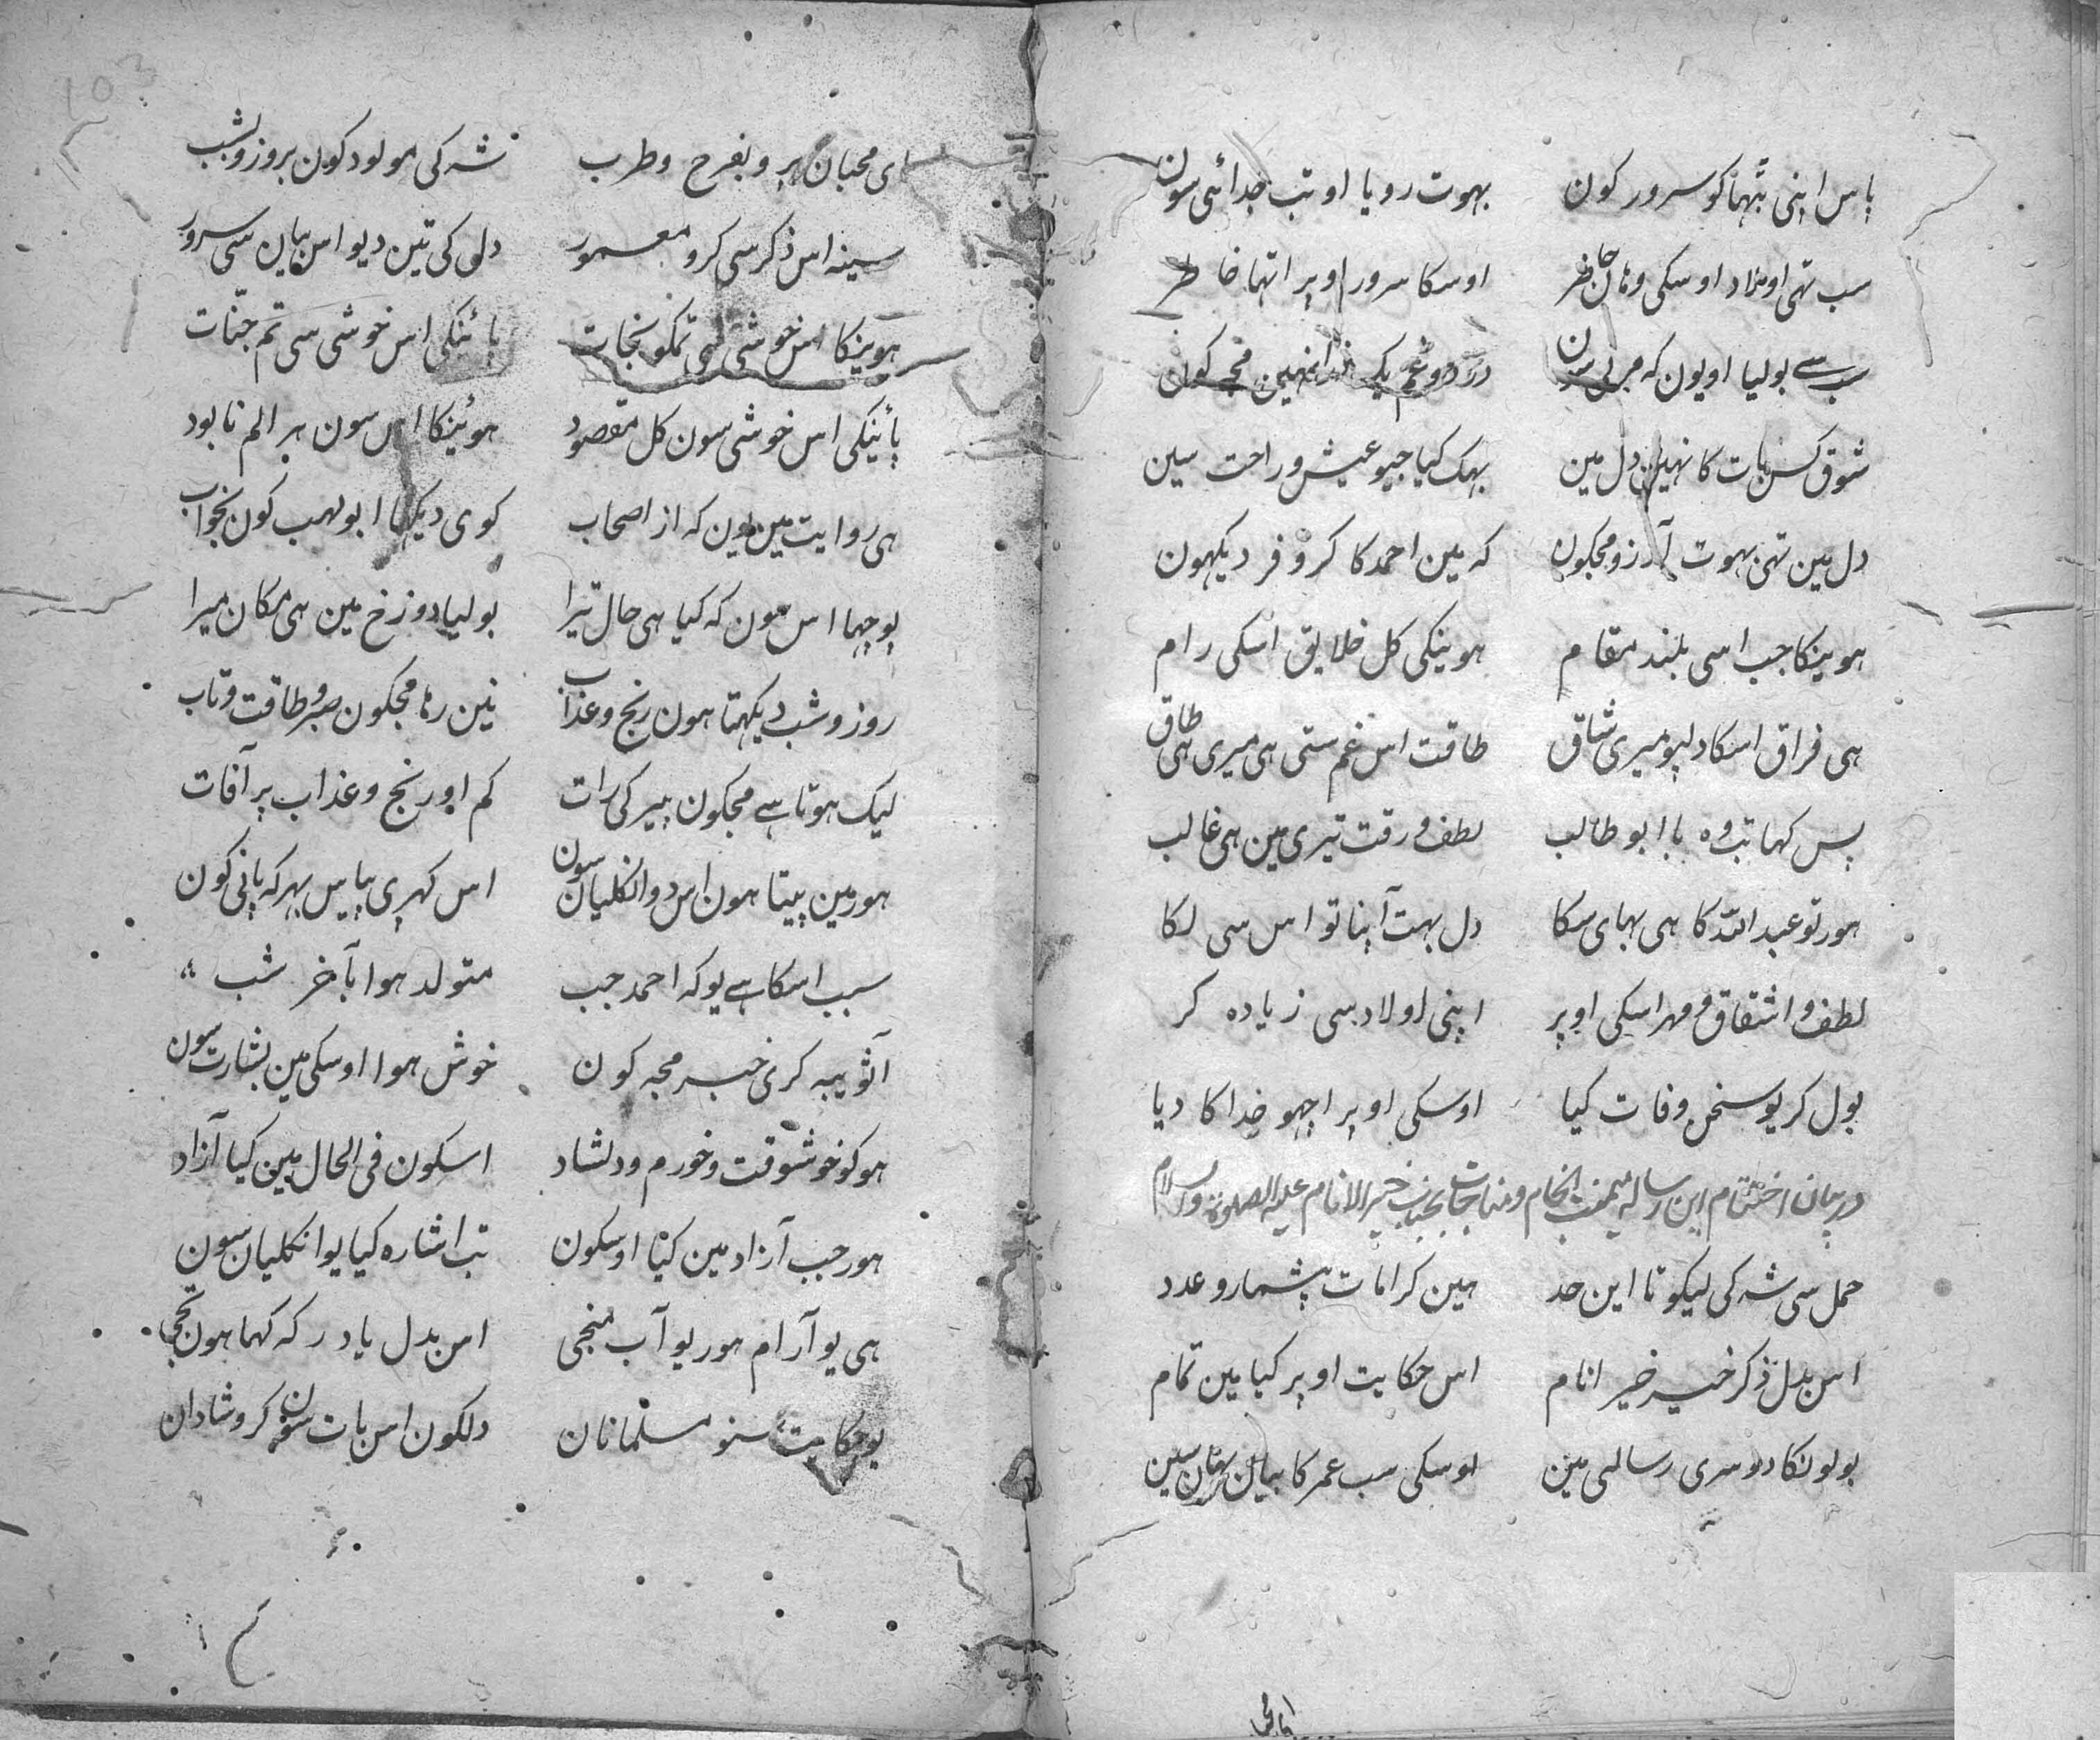 پاس اپنی بٹھا کو سرور کون بہوت رویا او تب جدائی سون
سب تھی اولاد اوسکی وہان حاظر اوسکا سرور اوپر اتھا خاطر
سب سے بولیا او یون کہ میری سون درد و غم یک ذرا نہین مجھے کون
شوق کس بات کا نہین دل مین بھک کیا جیو عیش و راحت سین
دل مین تھی بہوت آرزو مجکون کہ مین احمد کا کر و فر دیکھون
ہوینکا جب اسی بلند مقام ہوینکی کل خلایق اسکی رام
ہی فراق اسکا دلپو میری شاق طاقت اس غم ستی ہی میری طاق
پس کہا تب وہ با ابو طالب لطف و رقت تیری مین ہی غالب
ہور تو عبد اللّہ کا ہی بھای سکا دل بہت آپنا تو اس سی لکا
لطف و اشفاق و مہر اسکی اوپر اپنی اولاد سی زیادہ کر
بول کر یو سخن وفات کیا اوسکی اوپر اچھو خدا کا دیا
در بیان اختتام این رسالہ میمنت انجام و مناجات بجناب خیر الانام علیہ الصلوۃ و السلام
حمل سی شہ کی لیکو تا این حد ہین کرامات بیشمار و عدد
اس بدل ذکر خیر خیر انام اس حکایت اوپر کیا مین تمام
بولونکا دوسری رسالی مین اوسکی سب عمر کا بیان سین
ای محبان ہر و بفرح و طرب شہ کی مولود کون بروز و شب
سینہ اس ذکر سی کرو معمور دلی کی تین دیو اس بیان سی سرور
ہوینکا اس خوشی سی تمکو نجات پائنکی اس خوشی سی تم جنّات
پأینکی اس خوشی سون کل مقصود ہوئینکا اس سون ہر الم نابود
ہی روایت مین یون کہ از اصحاب کوی دیکھا ابو لہب کون بخواب
پوچھا اس سون کہ کیا ہی حال تیرا بولیا دوزخ مین ہی مکان میرا
روز و شب دیکھتا ہون رنج و عذاب نین رہا مجکون صبر و طاقت و تاب
لیک ہوتا ہے مجکون پیر کی رات کم او رنج و عذاب پر آفات
ہور مین پیتا ہون اس دو انکلیان سون اس کھری پیاس بھر کہ پانی کون
سبب اسکا ہے یو کہ احمد جب متولد ہوا بآخر شب
آ ثویبہ کری خبر مجہ کون خوش ہوا اوسکی مین بشارت سون
ہوکو خوشوقت و خورم و دلشاد اسکون فی الحال مین کیا آزاد
ہور جب آزاد مین کیا اوسکون تب اشارہ کیا یو انکلیان سون
ہی یو آرام ہور یو آب منجی اس بدل یاد رکہ کہا ہون تجی
یو حکایت سنو مسلمانان دلکون اس بات سون کرو شادان